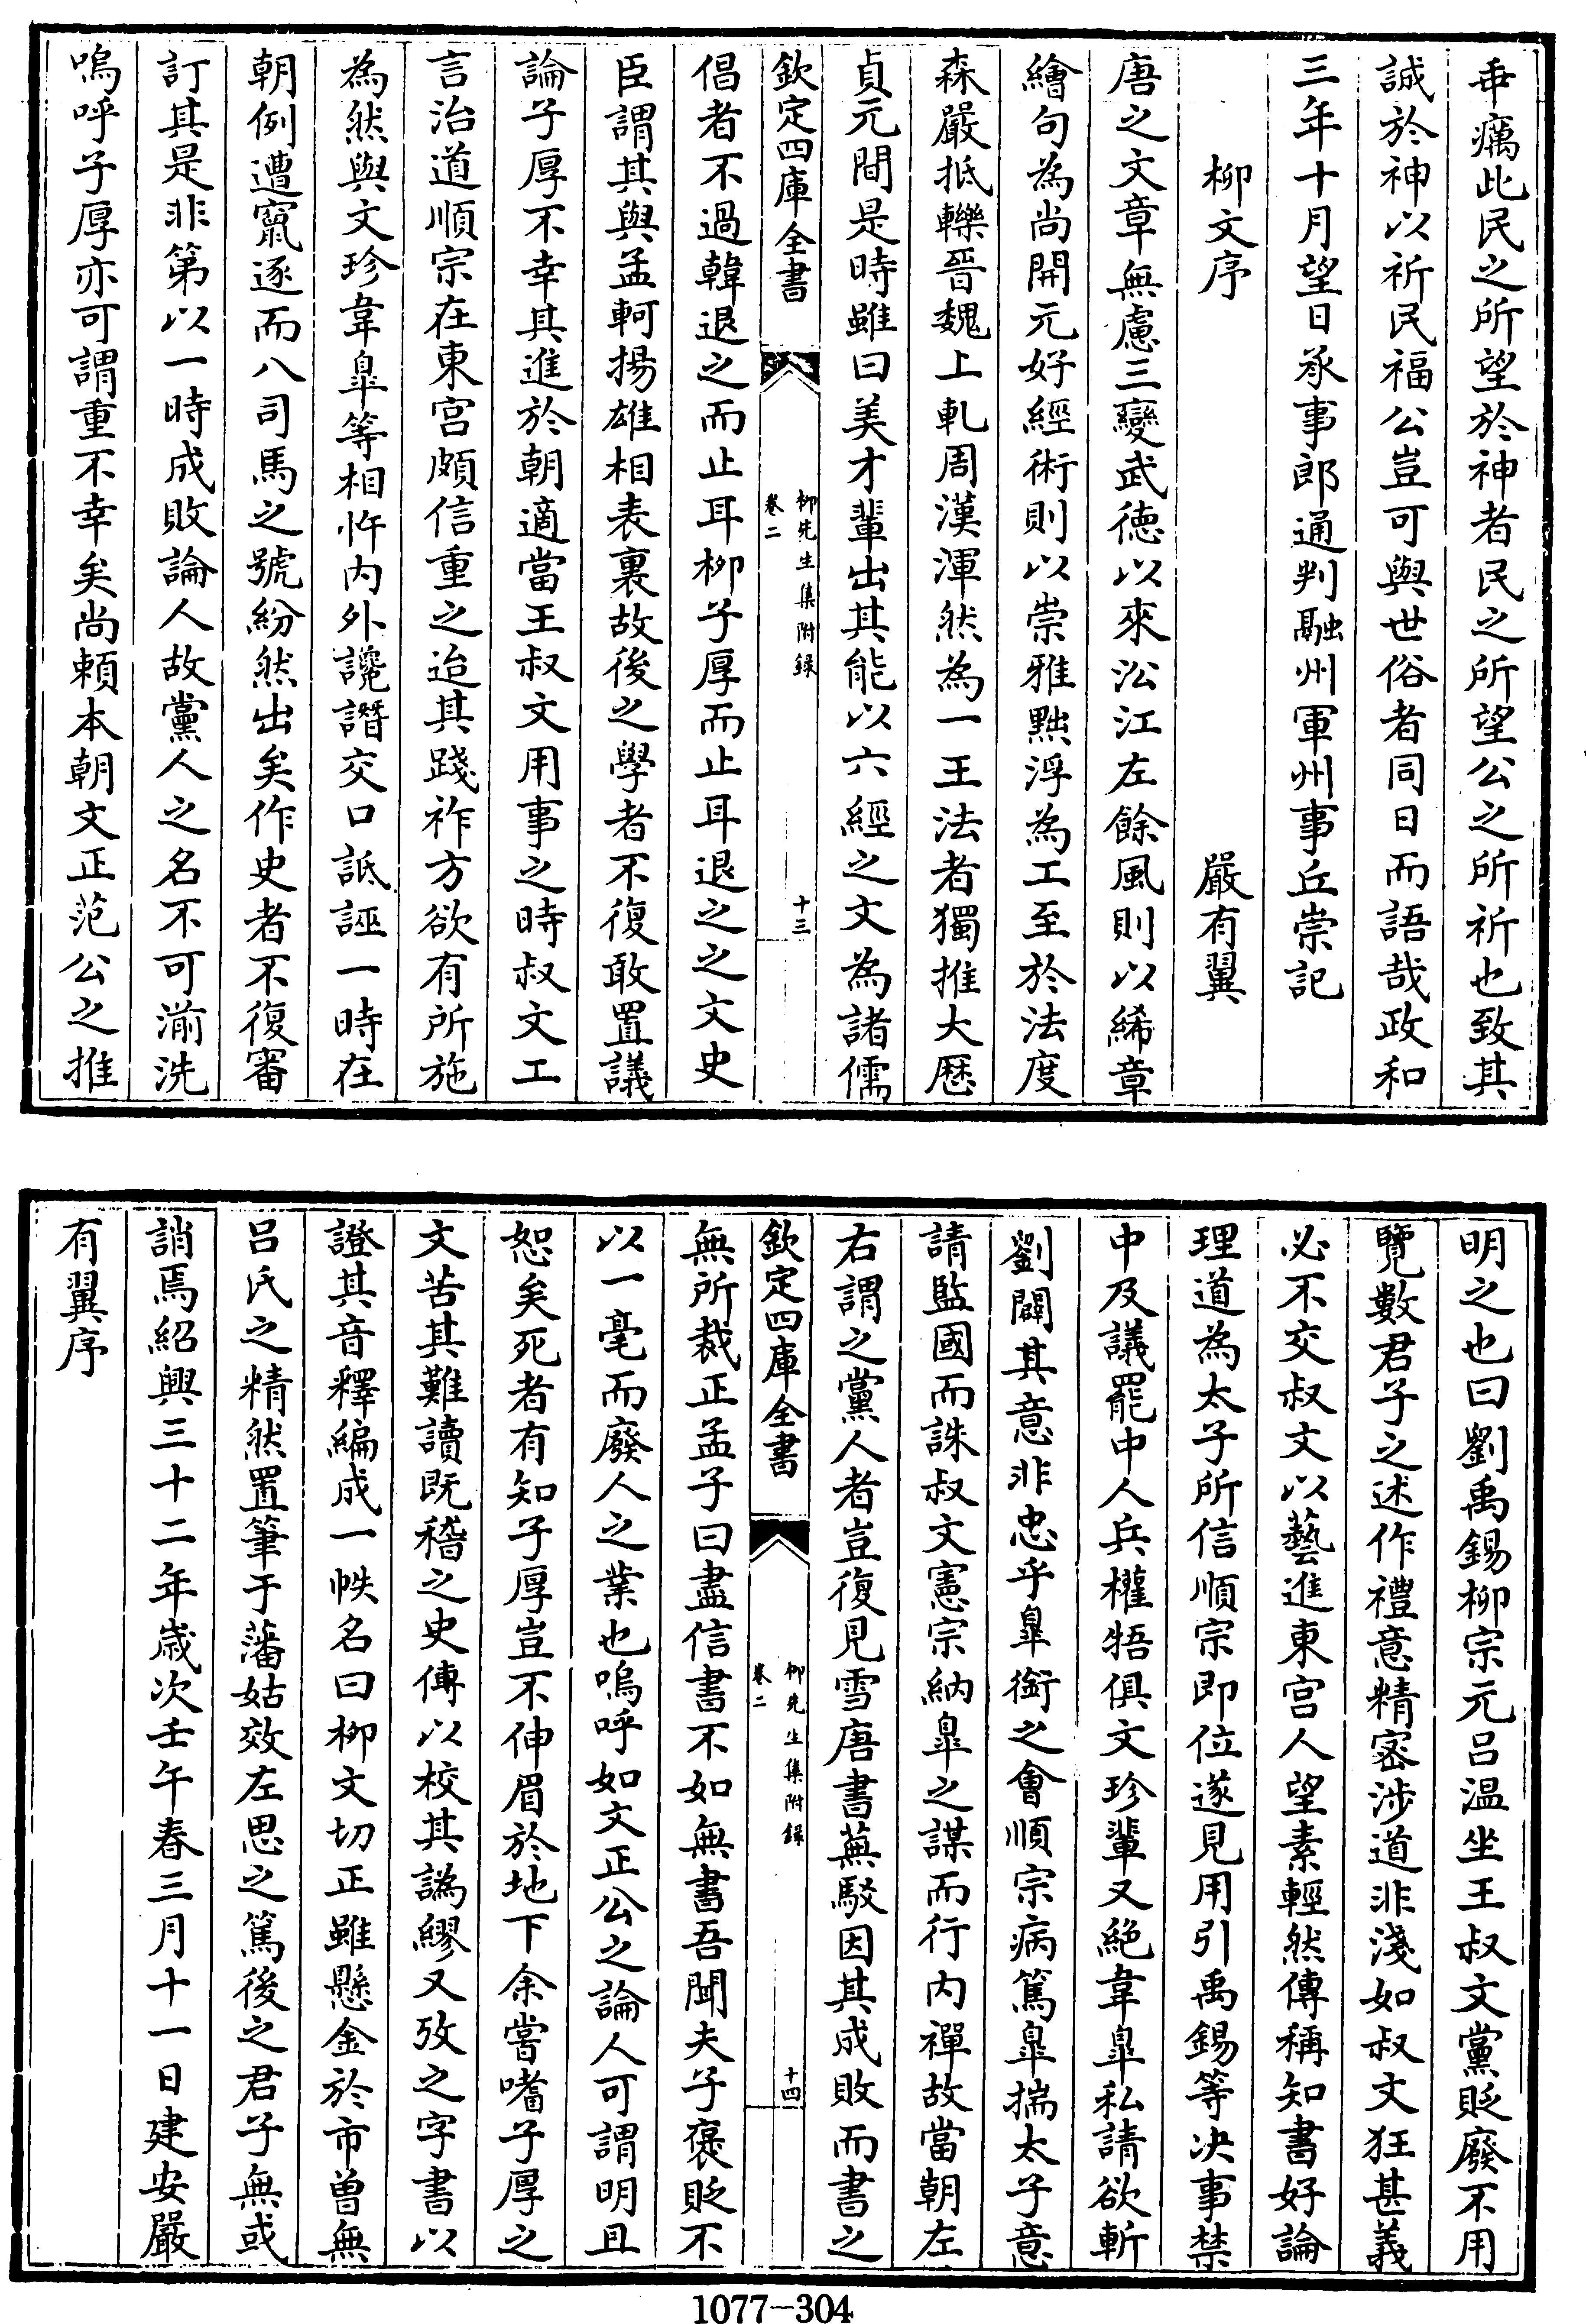 垂癘此民之所望於神者民之所望公之所祈也致其
誠於神以祈民福公豈可與世俗者同日而語哉政和
三年十月望日承事郎通判融州軍州事丘崇記
柳文序　嚴有翼
唐之文章無慮三變武徳以來沿江左餘風則以絺章
繪句為尚開元好經術則以崇雅黜浮為工至於法度
森嚴抵轢晉魏上軋周漢渾然為一王法者獨推大厯
貞元間是時雖曰美才輩出其能以六經之文為諸儒
欽定四庫全書
柳先生集附録
卷二
十三
倡者不過韓退之而止耳柳子厚而止耳退之之文史
臣謂其與孟軻揚雄相表裏故後之學者不復敢置議
論子厚不幸其進於朝適當王叔文用事之時叔文工
言治道順宗在東宫頗信重之迨其踐祚方欲有所施
為然與文珍韋臯等相忤内外讒譖交口詆誣一時在
朝例遭竄逐而八司馬之號紛然出矣作史者不復審
訂其是非第以一時成敗論人故黨人之名不可湔洗
嗚呼子厚亦可謂重不幸矣尚頼本朝文正范公之推
明之也曰劉禹錫柳宗元吕温坐王叔文黨貶廢不用
覽數君子之述作禮意精密涉道非淺如叔文狂甚義
必不交叔文以藝進東宫人望素輕然傳稱知書好論
理道為太子所信順宗即位遂見用引禹錫等决事禁
中及議罷中人兵權牾俱文珍輩又絶韋臯私請欲斬
劉闢其意非忠乎臯銜之會順宗病篤臯揣太子意
請監國而誅叔文憲宗納臯之謀而行内禪故當朝左
右謂之黨人者豈復見雪唐書蕪駁因其成敗而書之
欽定四庫全書
柳先生集附録
卷二
十四
無所裁正孟子曰盡信書不如無書吾聞夫子褒貶不
以一毫而廢人之業也嗚呼如文正公之論人可謂明且
恕矣死者有知子厚豈不伸眉於地下余嘗嗜子厚之
文苦其難讀既稽之史傳以校其譌繆又攷之字書以
證其音釋編成一帙名曰柳文切正雖懸金於市曾無
吕氏之精然置筆于藩姑效左思之篤後之君子無或
誚焉紹興三十二年歳次壬午春三月十一日建安嚴
有翼序
1077-304